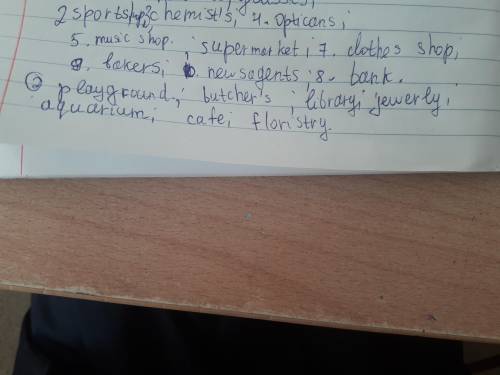 2 sports shop 3 chemist's; 4. Opticans;
5. music shop. ; supermarket; 7. clothes shop;
9. bakers; newsagents; 8. bank.
② playground; butcher's; library; jewerly;
aquarium; cafe; floristry.